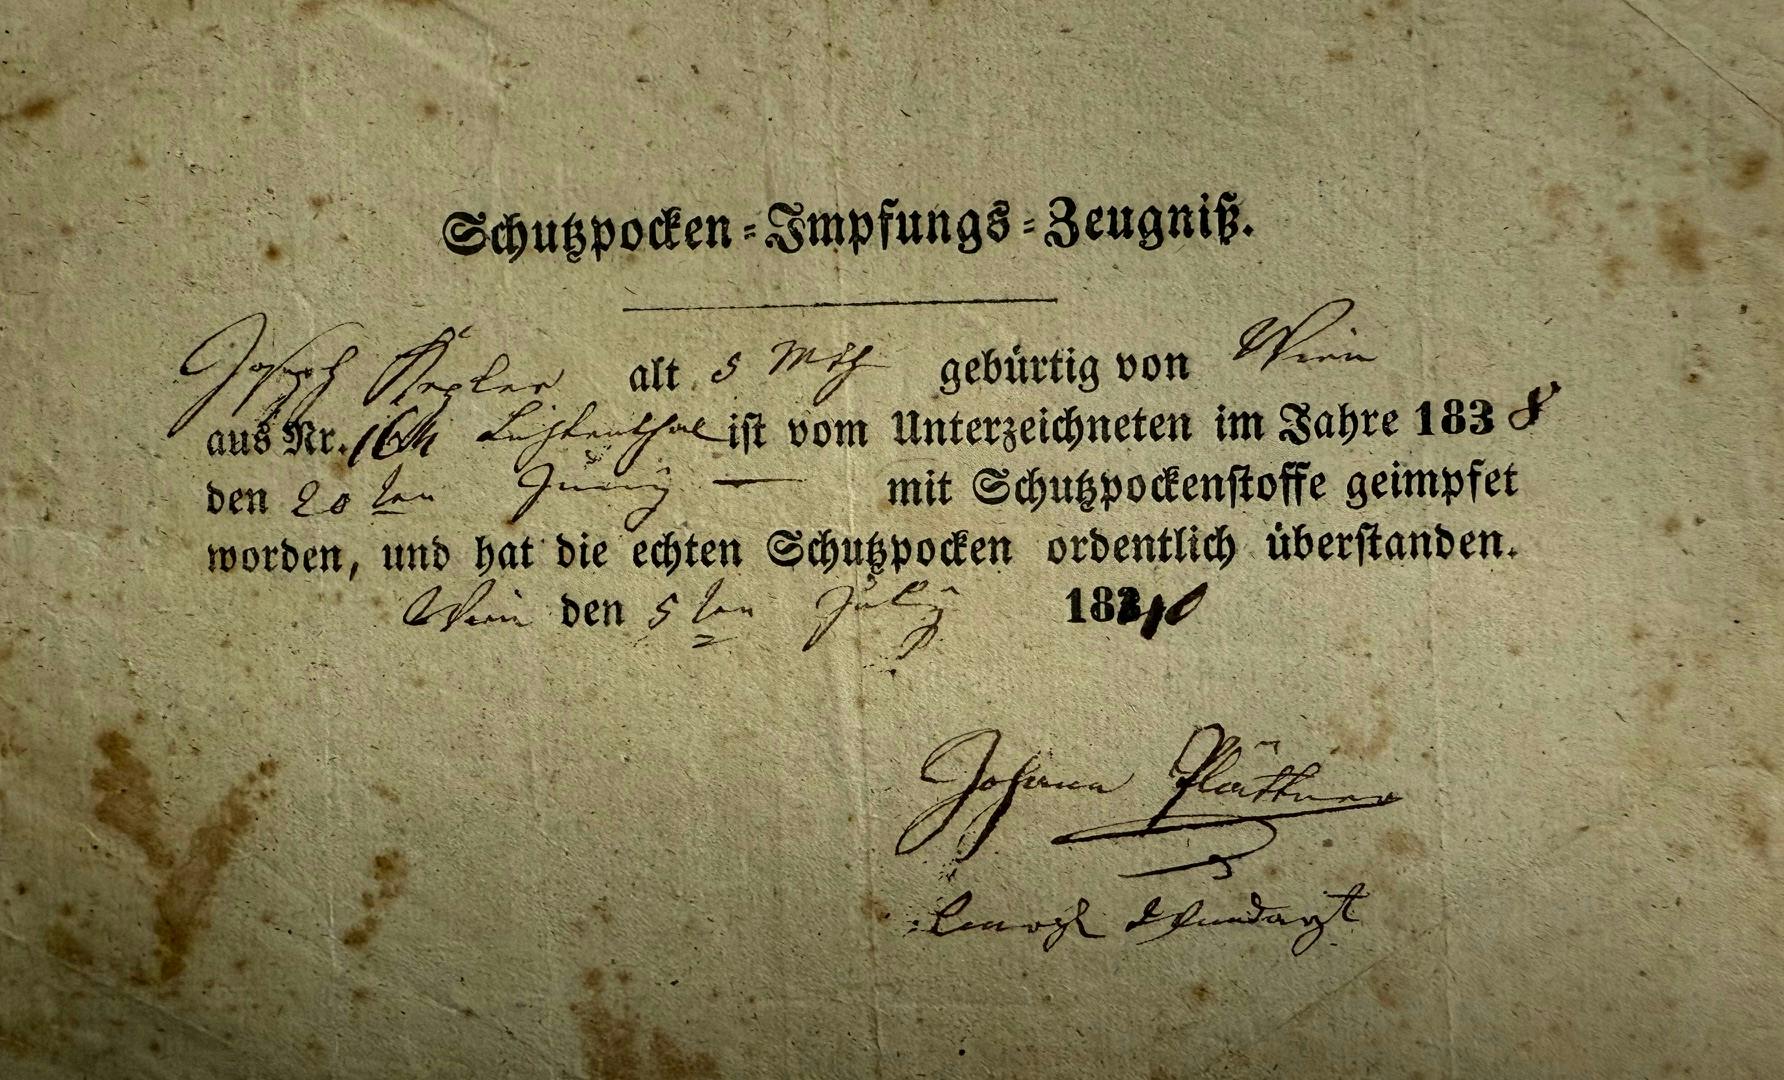 Schutzpocken-Impfungs-Zeugniß.
Joseph Kepler alt 5 Mth gebürtig von Wien
aus Nr. 164 Lichtenthal ist vom Unterzeichneten im Jahre 1838
den 20ten Juny — mit Schutzpockenstoffe geimpfet
worden, und hat die echten Schutzpocken ordentlich überstanden.
Wien den 5ten July 1840
Johann Plättner
Wundarzt